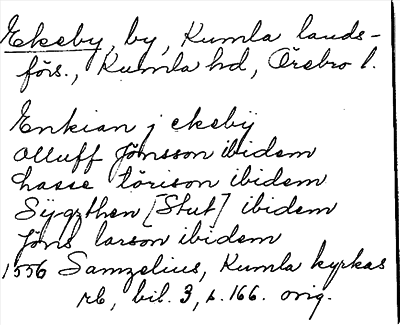 Ekeby, by, Kumla lands-
förs., Kumla hd, Örebro l.
Enkian j ekeby
Olluff Jönsson ibidem
Lasse törison ibidem
Sÿgzthen [Stut] ibidem
Jöns larson ibidem
1556 Samzelius, Kumla kyrkas
rb, bil. 3, s. 166. orig.